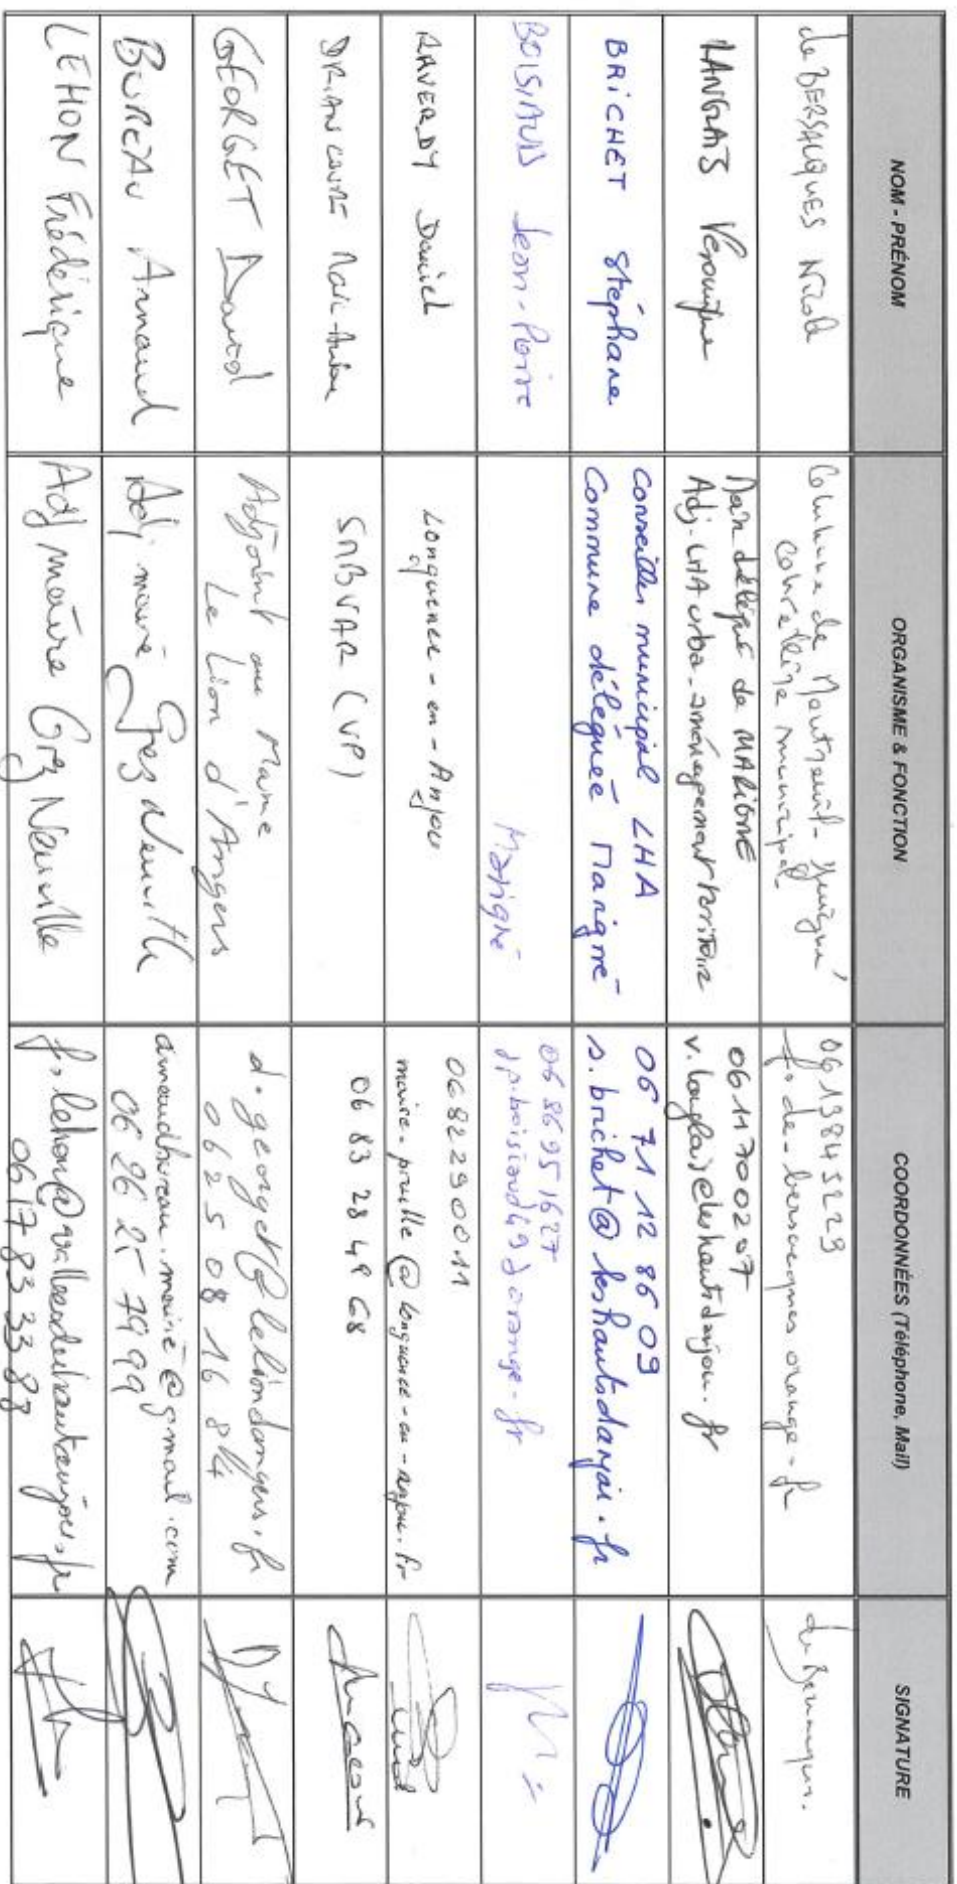 NOM - PRÉNOM
ORGANISME & FONCTION
COORDONNÉES (Téléphone, Mail)
SIGNATURE
de BERSACQUES Nicole
Commune de Montreuil-Juigné
conseillère municipale
0613845229
f.de-bersacques orange-fr
LANGLAIS Véronique
Maire délégué de MARIGNE
Adj. LHA urba-aménagement territoire
0611700207
v.langlais@leshautsdanjou.fr
BRICHET Stéphane
Conseiller municipal LHA
Commune déléguée Marigné
06 71 12 86 09
s.brichet@leshautsdanjou.fr
BOISIAUD Jean-Pierre
Marigné
0686951627
jp.boisiaud49@orange-fr
RAVERDY Daniel
Longuenée-en-Anjou
0682290011
maire-pruille@longuenee-en-anjou.fr
Marc-Antoine
SMBVAR (VP)
06 83 28 49 68
GEORGET David
Adjoint au Maire
Le Lion d'Angers
d.georget@leliondangers.fr
06 25 08 16 84
BUREAU Arnaud
Adj. maire Grez Neuville
arnaudbureau.mairie@gmail.com
06 26 25 79 99
LEHON Frédérique
Adj maire Grez Neuville
f.lehon@valleesduhautanjou.fr
06 17 83 33 83